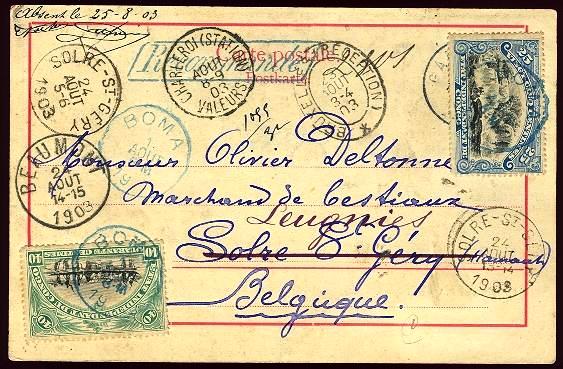 Absent le 25-8-03
Carte postale
Postkarte
Recommandé
SOLRE-ST-GÉRY
24
AOUT
5-6
1903
CHARLEROI (STATION)
AOUT
8-9
03
VALEURS
AOUT
3-4
03
BOMA
25
ÉTAT INDÉPENDANT DU CONGO
25
BEAUMONT
AOUT
14-15
1903
Monsieur Olivier Deltonne
Marchand de bestiaux
Leugnies
Solre St Géry (Hainaut)
Belgique
SOLRE-ST-GÉRY
24
AOUT
13-14
1903
BOMA
10
10